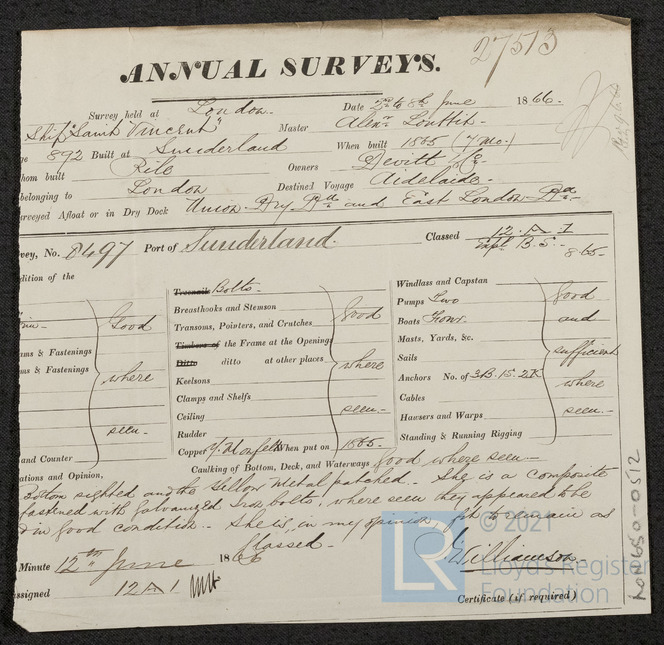 27513
ANNUAL SURVEYS.
Survey held at London. Date 2nd to 8th June 1866.
Ship "Saint Vincent" Master Alexr Louttit.
892 Built at Sunderland When built 1865 (7 Mo.)
hom built Pile Owners Devitt & Co
belonging to London Destined Voyage Aidelaide.
rveyed Afloat or in Dry Dock Union Dry Dk and East London Dk.
vey, No. 8497 Port of Sunderland. Classed 12 A 1
Expl B.S. 865
dition of the
Good where seen
ms & Fastenings
ms & Fastenings
and Counter
Treenails Bolts.
Breasthooks and Stemson
Transoms, Pointers, and Crutches
Timbers of the Frame at the Openings
Ditto ditto at other places
Keelsons
Clamps and Shelfs
Ceiling
Rudder
Good where seen
Copper Y. Metal When put on 1865
Windlass and Capstan
Pumps Two
Boats Four
Masts, Yards, &c.
Sails
Anchors No. of 3B. 1S. 2K
Cables
Hawsers and Warps
Standing & Running Rigging
Good and sufficient where seen
Caulking of Bottom, Deck, and Waterways Good where seen
ations and Opinion,
Bottom sighted and the Yellow Metal patched. She is a composite
fastened with galvanized Iron bolts, where seen they appeared to be
in good condition. She is, in my opinion, fit to remain as
Classed.
Minute 12th June 1866
J. Williamson
ssigned 12 A 1
Certificate (if required)
LON650-0512
© 2021
LR
Lloyd's Register
Foundation